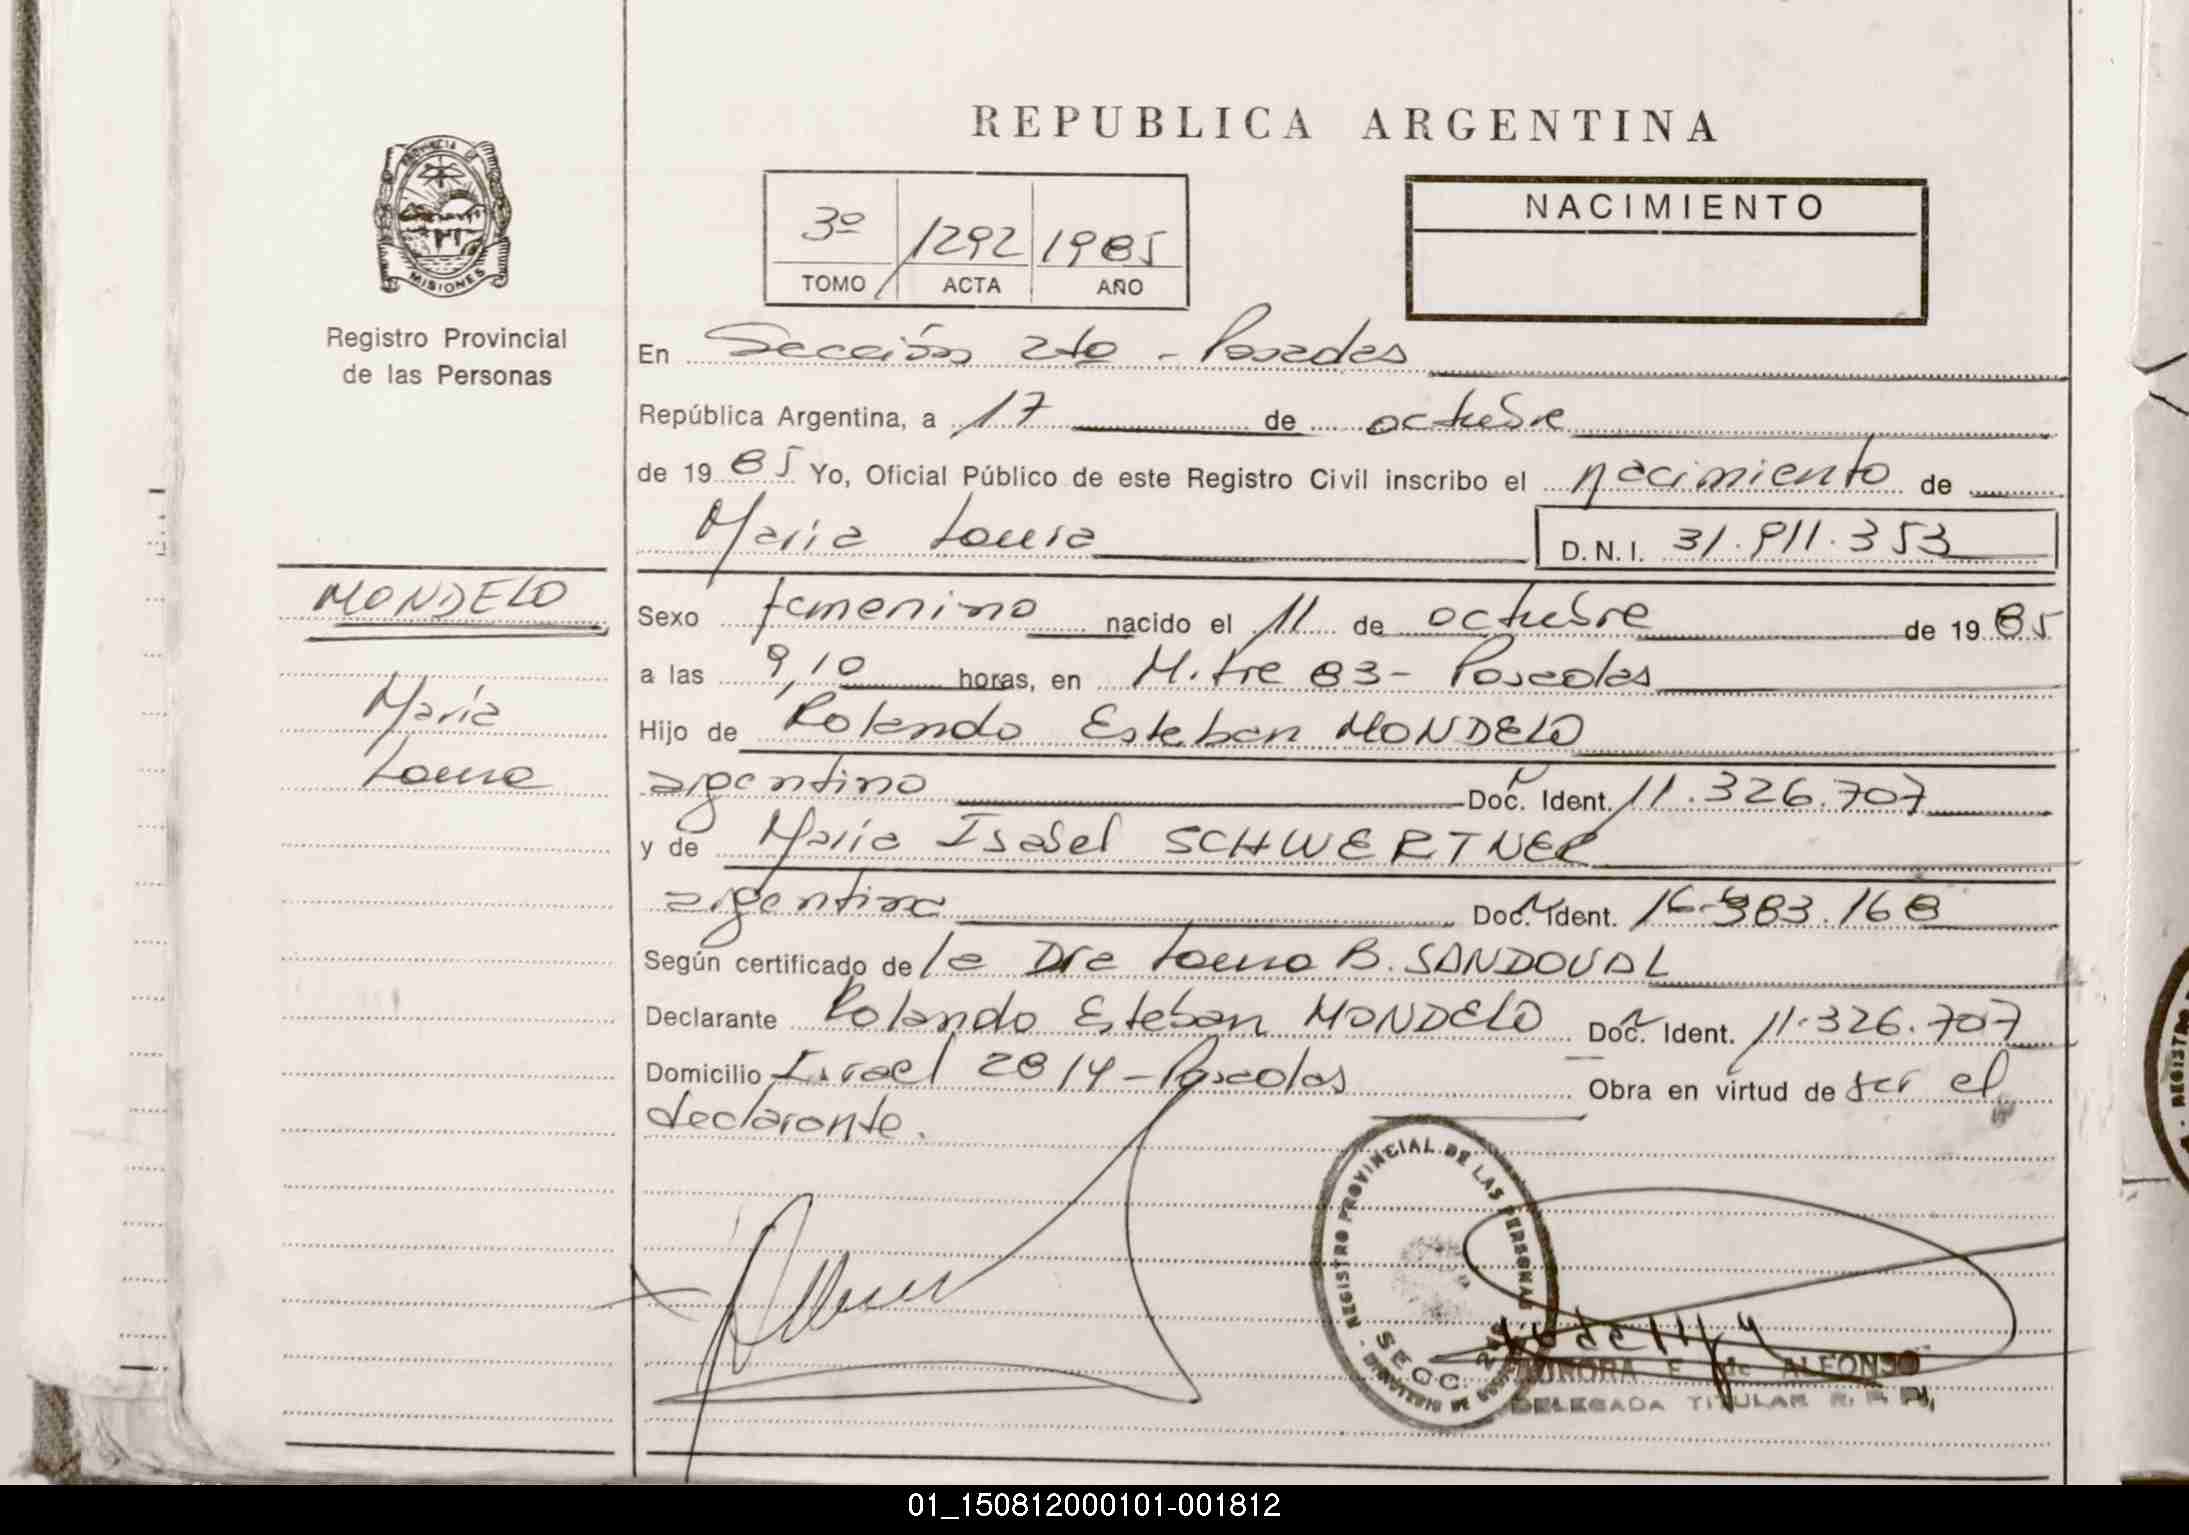 REPUBLICA ARGENTINA
PROVINCIA DE
MISIONES
Registro Provincial
de las Personas
3º 1292 1985
TOMO ACTA AÑO
NACIMIENTO
En Sección 2da - Posadas
República Argentina, a 17 de octubre
de 1985 Yo, Oficial Público de este Registro Civil inscribo el nacimiento de
María Laura D.N.I. 31.911.353
MONDELO
María
Laura
Sexo femenino nacido el 11 de octubre de 1985
a las 9,10 horas, en Mitre 83 - Posadas
Hijo de Rolando Esteban MONDELO
argentino Doc. Ident. 11.326.707
y de María Isabel SCHWERTNER
argentina Doc. Ident. 16.383.168
Según certificado de la Dra Laura B. SANDOVAL
Declarante Rolando Esteban MONDELO Doc. Ident. 11.326.707
Domicilio Israel 2814 - Posadas Obra en virtud de ser el
declarante.
REGISTRO PROVINCIAL DE LAS PERSONAS
SECC. 2da
AURORA E. de ALFONSO
DELEGADA TITULAR R. P. P.
01_150812000101-001812